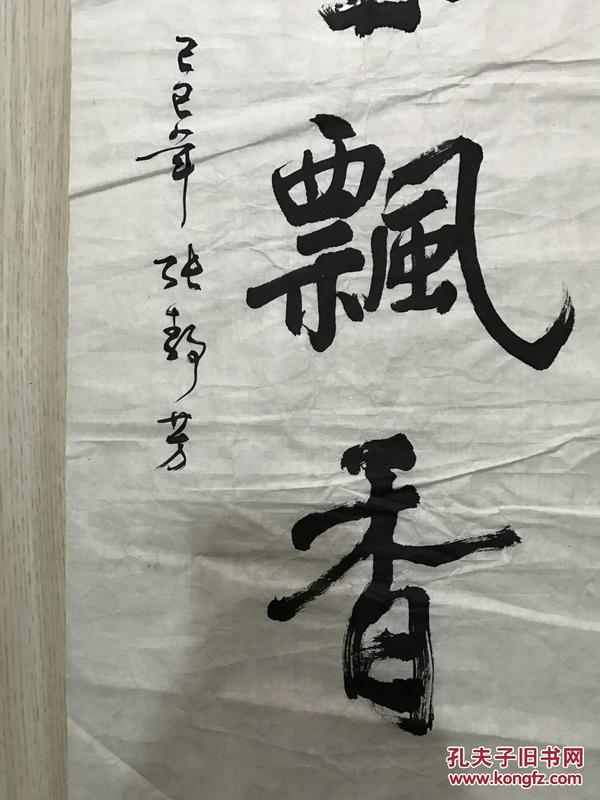 飄香
己巳年 张静芳
孔夫子旧书网
www.kongfz.com